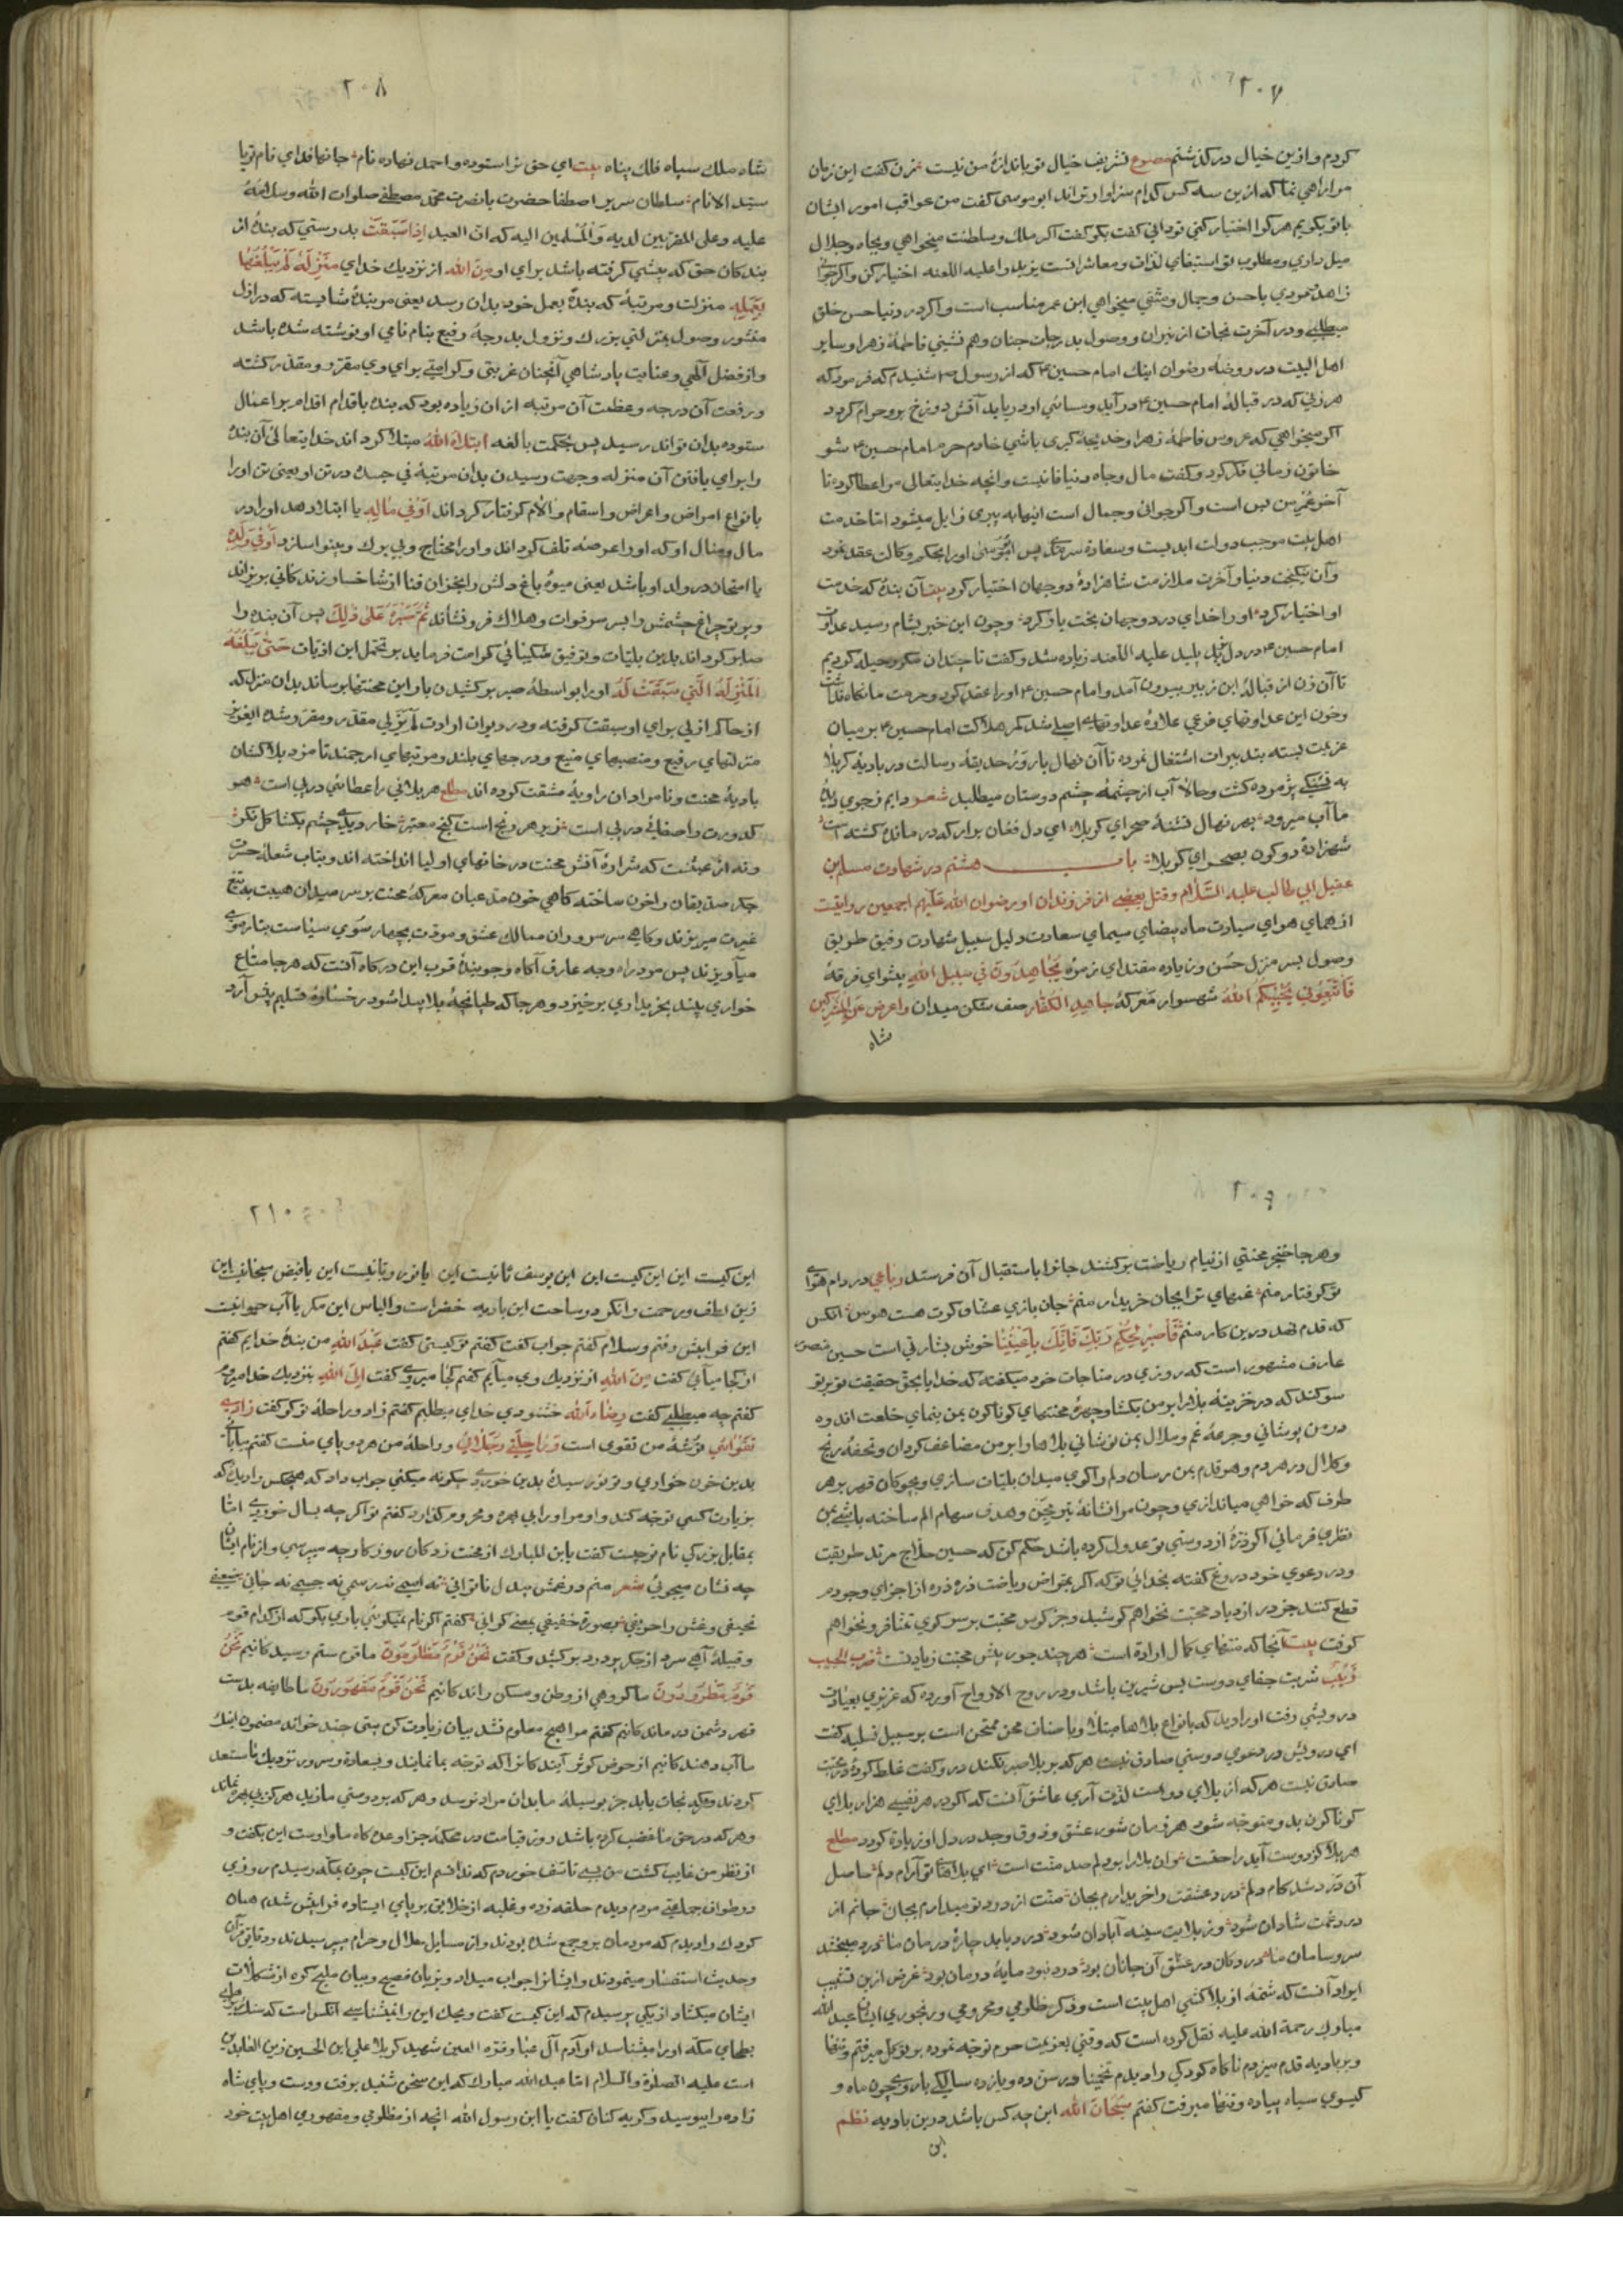 ٢٠٧
كردم وازين خيال در كذشتم مصوع تشريف خيال تو باندازهٔ من نيست زن كفت اين زمان
مرا راهي نما كه ازين سه كس كدام سزاوارتراند ابوموسى كفت من عواقب امور ايشان
باتو بكويم هر كرا اختيار كني تو داني كفت بكو كفت اكر ملك وسلطنت ميخواهي وبجاه وجلال
ميل داري ومطلوب تو استيفاي لذات ومعاشرانست يزيد را عليه اللعنه اختيار كن واكر جواني
زاهد باحسن وجمال ومتقي ميخواهي ابن عمر مناسب است واكر در دنيا حسن خلق
ميطلبي ودر آخرت نجات از نيران ووصول بدرجات جنان وهم نشيني فاطمهٔ زهرا وساير
اهل البيت در روضهٔ رضوان اينك امام حسين كه از رسول شنيدم كه فرمود كه
هر زني كه در قبالهٔ امام حسين درآيد وبسائي او دريابد آتش دوزخ برو حرام كردد
اكر ميخواهي كه عروس فاطمهٔ زهرا وخديجهٔ كبرى باشي خادم حرم امام حسين شو
خاتون زماني فكر كرد وكفت مال وجاه دنيا فانيست وانچه خدايتعالى مرا عطا كرده تا
آخر عمر من بس است واكر جواني وجمال است اينها به پيري زايل ميشود امّا خدمت
اهل بيت موجب دولت ابديست وسعادة سرمدي پس ابوموسى او را بحكم وكالت عقد نمود
وآن نيكبخت دنيا وآخرت ملازمت شاهزادهٔ دوجهان اختيار كرد بيت آن بنده كه خدمت
او اختيار كرد او را خداي در دوجهان بخت ياور كرد وچون اين خبر بشام رسيد عداوت
امام حسين در دل يزيد پليد عليه اللعنه زياده شد وكفت تا چندان مكر وحيله كرديم
تا آن زن از قبالهٔ ابن زبير بيرون آمد وامام حسين او را عقد كرد وحرمت ما نكاه نداشت
وچون اين عداوتهاي فرعي علاوهٔ عداوتهاي اصلي شد كمر هلاكت امام حسين بر ميان
عزيمت بسته بتدبيرات اشتغال نموده تا آن نهال بارور حديقهٔ رسالت در باديهٔ كربلا
به تشنكي پژمرده كشت وحالا آب از چشمهٔ چشم دوستان ميطلبد شعر دايم ز جوي ديدهٔ
ما آب ميرود بهر نهال تشنهٔ صحراي كربلا اي دل فغان برآر كه در ماتم كشته است
شهزادهٔ دوكون بصحراي كربلا باب هشتم در شهادت مسلم ابن
عقيل ابي طالب عليه السّلام وقتل بعضي از فرزندان او رضوان الله عليهم اجمعين روايتست
از هماي هواي سيادت ماه بيضاي سيماي سعادت دليل سبيل شهادت رفيق طريق
وصول بسر منزل حسن وزياده مقتداي زمرهٔ يُجَاهِدُونَ فِي سَبِيلِ اللهِ پيشواي فرقهٔ
فَاتَّبِعُونِي يُحْبِبْكُمُ اللهُ شهسوار معركهٔ جاهِدِ الْكُفَّارَ صف شكن ميدان واعرض عن المشركين
شاه
٢٠٨
شاه ملك سپاه فلك پناه بيت اي حق ترا ستوده واحمد نهاده نام جانها فداي نام تو يا
سيّد الانام سلطان سرير اصطفا حضرت بانصرت محمّد مصطفى صلوات الله وسلامه
عليه وعلى المقربين لديه والمسلمين اليه كه ان العبد اِذا سَبَقَتْ بدرستي كه بندهٔ از
بندكان حق كه پيشي كرفته باشد براي او مِنَ اللهِ از نزديك خداي مَنْزِلَةٌ لَمْ يَبْلُغْهَا
بِعَمَلِهِ منزلت ومرتبهٔ كه بندهٔ بعمل خود بدان نرسد يعني مر بندهٔ شايسته كه در ازل
منشور وصول بمنزلتي بزرك ونزول بدرجهٔ رفيع بنام نامي او نوشته شده باشد
واز فضل الهي وعنايت پادشاهي آنچنان عزيتي وكرامتي براي وي مقرّر ومقدّر كشته
ورفعت آن درجه وعظمت آن مرتبه از ان زياده بود كه بنده باقدام اقدام بر اعمال
ستوده بدان تواند رسيد پس بحكمت بالغه اِبْتَلَاهُ اللهُ مبتلا كرداند خدايتعالى آن بندهٔ
را براي يافتن آن منزله وجهت رسيدن بدان مرتبهٔ في جسده در تن او يعني تن او را
بانواع امراض واعراض واسقام وآلام كرفتار كرداند اَوْ فِي مَالِهِ يا ابتلا دهد او را در
مال ومنال او كه او را عرضهٔ تلف كرداند واو را محتاج وبي برك وبينوا سازد اَوْ فِي وَلَدِهِ
يا امتحان در ولد او باشد يعني ميوهٔ باغ دلش را بخزان فنا از شاخسار زندكاني بريزاند
وپرتو چراغ چشمش را بسر سوفوات وهلاك فرونشاند ثُمَّ صَبَّرَهُ عَلَى ذٰلِكَ پس آن بنده را
صابر كرداند بدين بليّات وتوفيق شكيبائي كرامت فرمايد بر تحمّل اين اذيّات حَتَّى يَبْلُغَهُ
الْمَنْزِلَةَ الَّتِي سَبَقَتْ لَهُ او را بواسطهٔ صبر بركشيدن بار اين محنتها برساند بدان منزل كه
از حاكم ازلي براي او سبقت كرفته ودر ديوان ارادت لم يزلي مقدّر ومقرّر شده
منزلتهاي رفيع ومنصبهاي منيع ودرجهاي بلند ومرتبهاي ارجمند نامزد بلاكشان
باديهٔ محنت ونامرادان زاويهٔ مشقت كرده اند مطلع هر بلائي را عطائي درپي است هو
كدورت را صفائي درپي است زير هر رنج است كنج معتبر خار ديدي چشم بكشا كل نكر
ونه از عبثست كه شرارهٔ آتش محنت در خانهاي اوليا انداخته اند وبتاب شعلهٔ حسرت
جكر صديقان را خون ساخته كاهي خون مدعيان معركهٔ محنت بر سر ميدان هيبت به تيغ
غيرت ميريزند وكاهي سر سروران ممالك عشق ومودّت بچهار سوي سياست بناز موي
ميآويزند پس مرد راه وجه عارف آكاه وجويندهٔ قرب اين دركاه آنست كه هر جا متاع
خواري بيند بخريداري برخيزد وهر جا كه طپانچهٔ بلا پيدا شود رخسارهٔ تسليم پيش آرد
٢٠٩
وهر جا خنجر محنتي از نيام رياضت بركشند جانرا باستقبال آن فرستد رباعي در دام هواي
تو كرفتار منم غمهاي ترا بجان خريدار منم جان بازي عشاق كرت هست هوس انكس
كه قدم نهد درين كار منم فَاصْبِرْ لِحُكْمِ رَبِّكَ فَاِنَّكَ بِاَعْيُنِنَا خوش بشارتي است حسين منصور
عارف مشهور است كه روزي در مناجات خود ميكفته كه خدايا بحق حقيقت تو برتو
سوكند كه در خزينهٔ بلا را بر من بكشا وچهرهٔ محنتهاي كوناكون بمن بنماي خلعت اندوه
در من پوشاني وجرعهٔ غم وملال بمن نوشاني بلاها را بر من مضاعف كردان وتحفهٔ رنج
وكلال در هر دم وهر قدم بمن رسان ودلم را كوي ميدان بليّات سازي وبچوكان قهر بر هر
طرف كه خواهي مياندازي وچون مرا نشانهٔ تير محن وهدف سهام الم ساخته باشي بمن
نظري فرمائي اكر ذرهٔ از دوستي تو عدول كرده باشد حكم كن كه حسين حلّاج مرتد طريقت
ودر دعوي خود دروغ كفته بخدائي تو كه اكر بمقراض رياضت ذره ذره از اجزاي وجودم
قطع كنند جز در ازدياد محبّت نخواهم كوشيد وجز كوس محبّت بر سر كوي تمنا فرو نخواهم
كوفت بيت آنجا كه منتهاي كمال ارادة است هر چند جور بيش محبّت زيادتست ضرب الحبيب
زَبِيْبٌ شربت جفاي دوست بس شيرين باشد ودر روح الارواح آورده كه عزيزي بعيادت
درويشي رفت او را ديد كه بانواع بلاها مبتلا وباصناف محن ممتحن است بر سبيل تسليه كفت
اي درويش در دعوي دوستي صادق نيست هر كه بر بلا صبر نكند درو كفت غلط كردهٔ در محبّت
صادق نيست هر كه از بلاي دوست لذّت آري عاشق آنست كه اكر در هر نفسي هزار بلاي
كوناكون بدو متوجه شود هر زمان شور عشق وذوق وجد در دل او زياده كردد مطلع
هر بلا كز دوست آيد راحتست وان بلا را بر دلم صد منّت است اي بلاهاي تو آرام دلم حاصل
آن درد شد كام دلم درد عشقت را خريدارم بجان منّت از درد تو ميدارم بجان جانم از
درد غمت شادان شود وز بلايت سينه آبادان شود درد بايد چارهٔ درمان ما درد ميبخشد
سر وسامان ما درد كان در عشق آن جانان بود درد نبود مايهٔ درمان بود غرض ازين تشبيب
ايراد آنست كه شمهٔ از بلاكشي اهل بيت است وذكر مظلومي ومحرومي ورنجوري ايشان عبد الله
مبارك رحمة الله عليه نقل كرده است كه وقتي بعزيمت حرم توجه نموده بر توكّل ميرفتم وتنها
وبر باديه قدم ميزدم ناكاه كودكي را ديدم تخمينا در سن ده ويازده سالكي باروي چون ماه و
كيسوي سياه پياده وتنها ميرفت كفتم سُبْحَانَ اللهِ اين چه كس باشد درين باديه نظم
اين
٢١٠
اين كيست اين اين كيست اين اين يوسف ثانيست اين يا نور ربّانيست اين يا فيض سبحانيست اين
زين لطف ورحمت را نكر در ساحت اين باديه خضر است والياس اين مكر يا آب حيوانيست
اين فرا پيش رفتم وسلام كفتم جواب كفت كفتم تو كيستي كفت عَبْدُ اللهِ من بندهٔ خدايم كفتم
از كجا ميآئي كفت مِنَ اللهِ از نزديك وي ميآيم كفتم كجا ميروي كفت اِلَى اللهِ بنزديك خدا ميروم
كفتم چه ميطلبي كفت رِضَاءَ اللهِ خشنودي خداي ميطلبم كفتم زاد وراحلهٔ تو كو كفت زَادِي
تَقْوَائِي توشهٔ من تقوى است وَرَاحِلَتِي رِجْلَايَ وراحلهٔ من هر دو پاي منست كفتم بيابان
بدين خون خواري وتو نورسيدهٔ بدين خوردي چكونه ميكني جواب داد كه هيچكس را ديدي كه
بزيارت كسي توجه كند واو مر او را بي بهره ومحروم كذارد كفتم تو اكر چه بسال خوردي امّا
بمقابل بزركي نام تو چيست كفت يا ابن المبارك از محنت زدكان روزكار چه ميپرسي واز نام ايشان
چه نشان ميجوئي شعر منم در غمش بيدل ناتواني نه اسمي نه رسمي نه جسمي نه جاني ضعيفي
نحيفي وغش را حريفي بصورة خفيفي بمعني كراني كفتم اكر نام نميكوئي باري بكو كه از كدام قوم
وقبيلهٔ آهي سرد از جكر پر درد بركشيد وكفت نَحْنُ قَوْمٌ مَظْلُومُونَ ما قوم ستم رسيدكانيم نَحْنُ
قَوْمٌ مَطْرُودُونَ ما كروهي از وطن ومسكن راندكانيم نَحْنُ قَوْمٌ مَقْهُورُونَ ما طايفه بدست
قهر دشمن درماندكانيم كفتم مرا هيچ معلوم نشد بيان زيادت كن بيتي چند خواند مضمون اينك
ما آب دهندكانيم از حوض كوثر آيندكانرا كه توجه بما نمايند وبسعادة وسرور نزديك ما مستعد
كردند وهيچكس نجات نيابد جز بوسيلهٔ ما بدان مراد نرسد وهر كه بر دوستي ما زيد هركز بي بهره نماند
وهر كه در حق ما غصب كرده باشد روز قيامت در محكمهٔ جزا وعده كاه ما واوست اين بكفت و
از نظر من غايب كشت من بسي تاسّف خوردم كه ندانستم اين كيست چون بمكّه رسيدم روزي
در طواف جماعتي مردم ديدم حلقه زده وغلبه از خلايق بر پاي ايستاده فرا پيش شدم همان
كودك را ديدم كه مردمان برو جمع شده بودند واز مسايل حلال وحرام ميپرسيدند ودقايق قرآن
وحديث استفسار مينمودند وايشانرا جواب ميداد وبزبان فصيح وبيان مليح كره از مشكلات
ايشان ميكشاد از يكي پرسيدم كه اين كيست كفت ويحك اين را نميشناسي انكس است كه سنك ريزهاي
بطحاي مكّه او را ميشناسد او آدم آل عبا وقرّه العين شهيد كربلا علي ابن الحسين زين العابدين
است عليه الصلوة والسلام امّا عبد الله مبارك كه اين سخن شنيد برفت ودست وپاي شاه
زاده را ببوسيد وكريه كنان كفت يا ابن رسول الله انچه از مظلومي ومقهوري اهل بيت خود